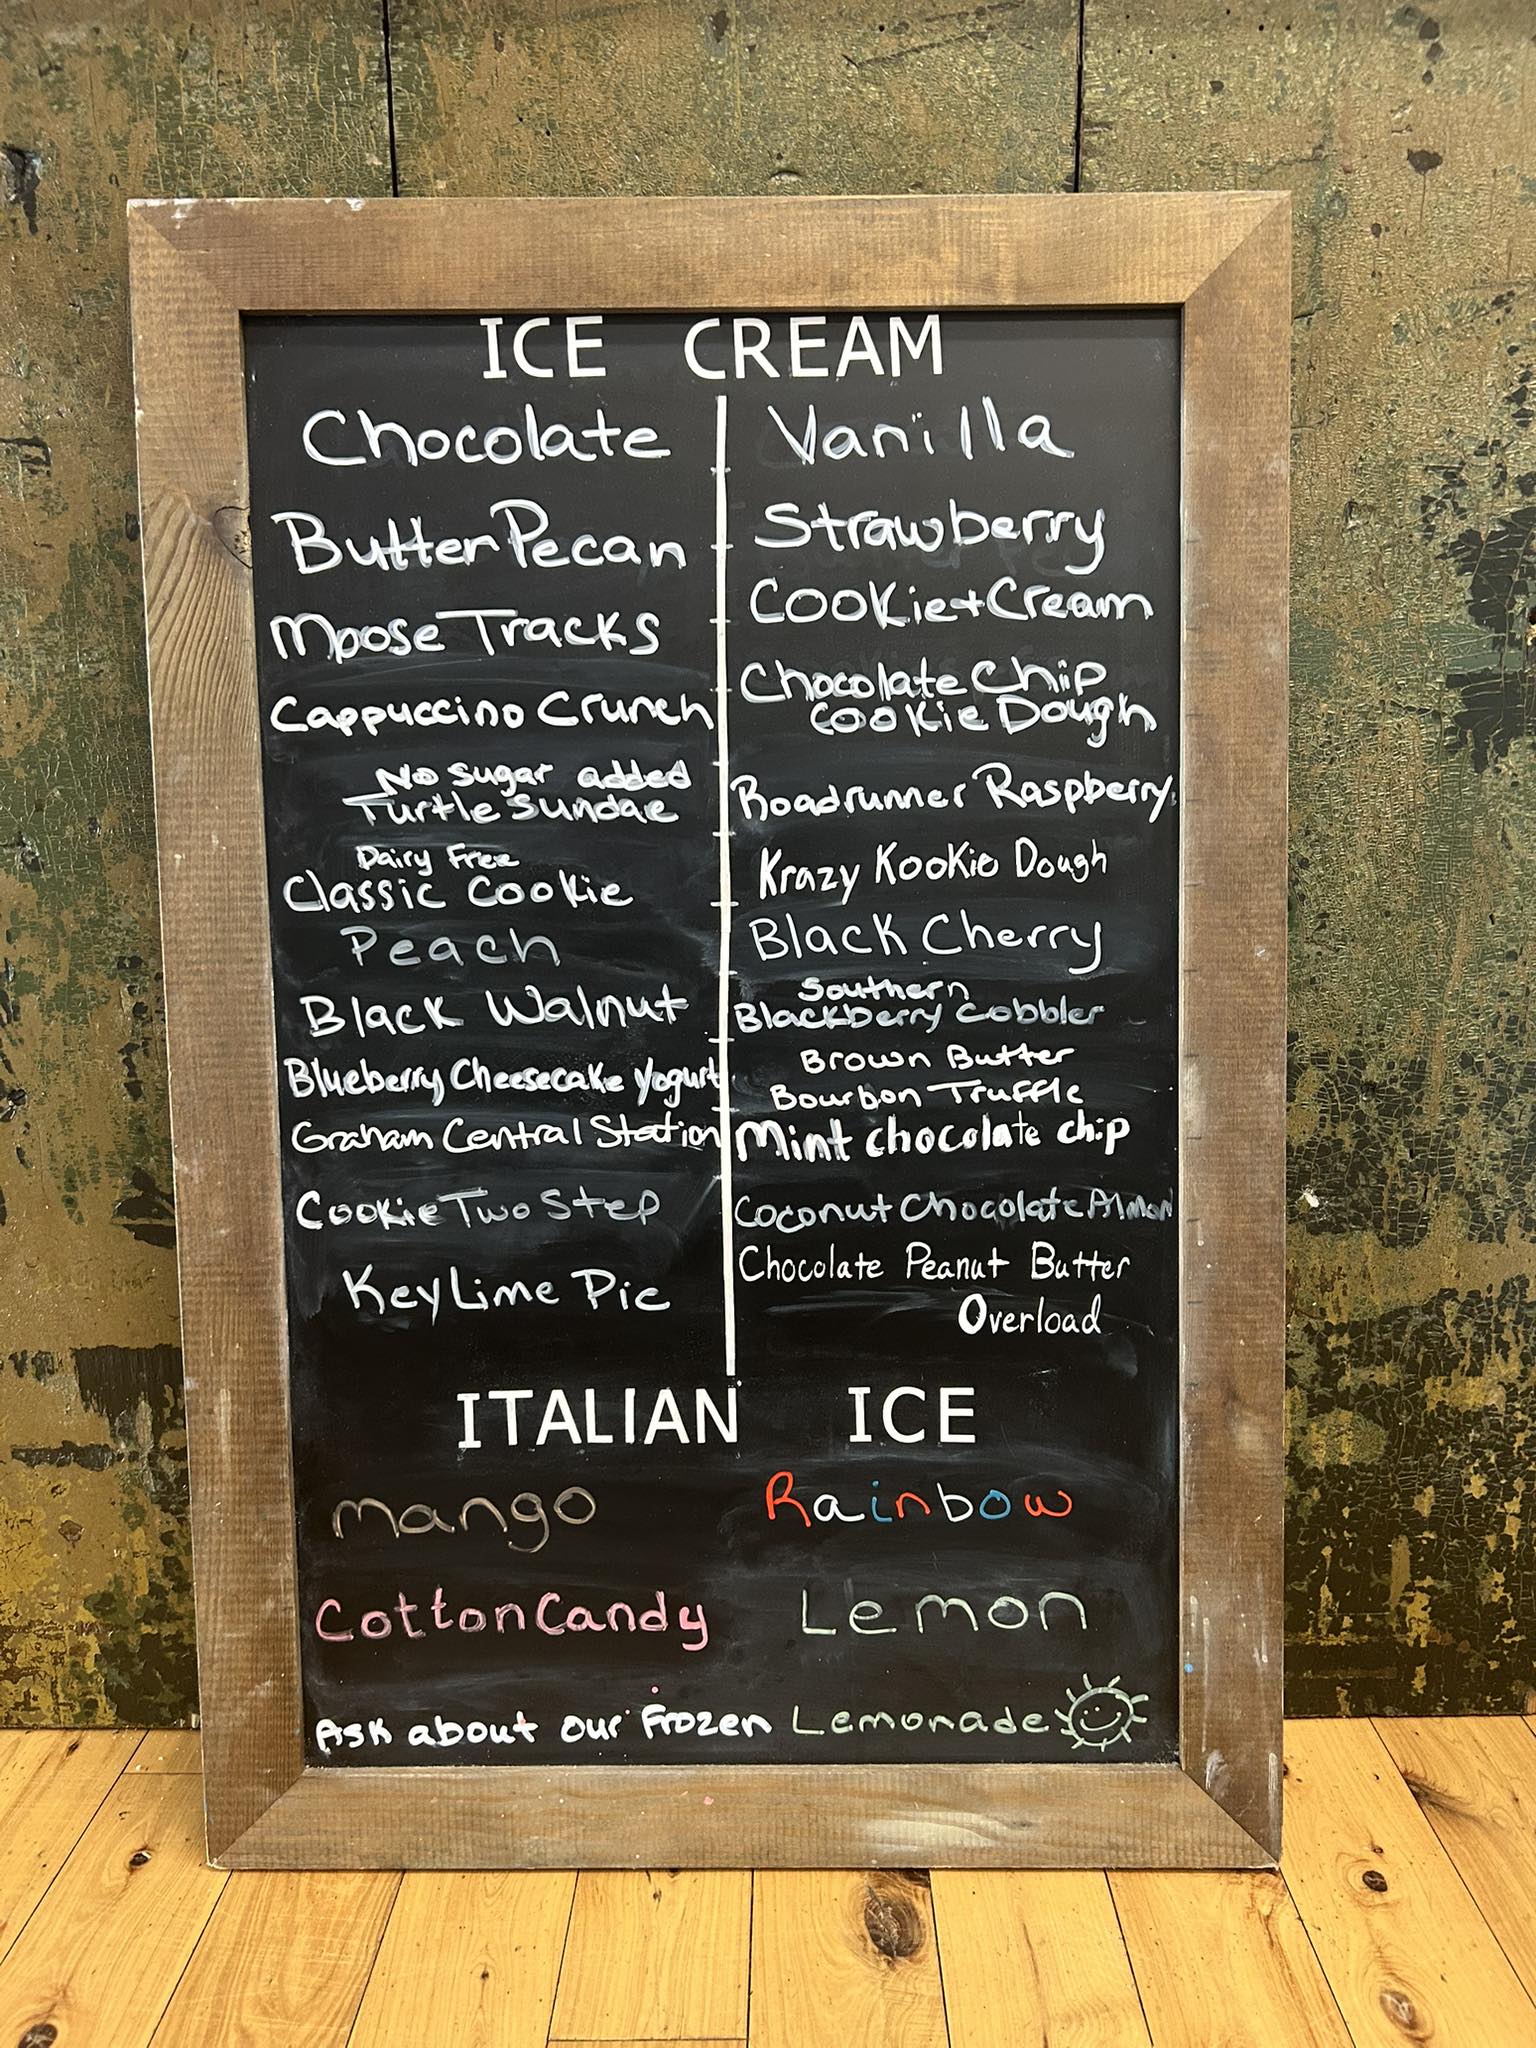 ICE CREAM
Chocolate
Butter Pecan
Moose Tracks
Cappuccino Crunch
No Sugar added
Turtle Sundae
Dairy Free
Classic Cookie
Peach
Black Walnut
Blueberry Cheesecake Yogurt
Graham Central Station
Cookie Two Step
Key Lime Pie
Vanilla
Strawberry
Cookie + Cream
Chocolate Chip
Cookie Dough
Roadrunner Raspberry
Krazy Kookie Dough
Black Cherry
Southern
Blackberry Cobbler
Brown Butter
Bourbon Truffle
Mint chocolate chip
Coconut Chocolate Almond
Chocolate Peanut Butter
Overload
ITALIAN ICE
Mango Rainbow
Cotton Candy Lemon
Ask about our Frozen Lemonade